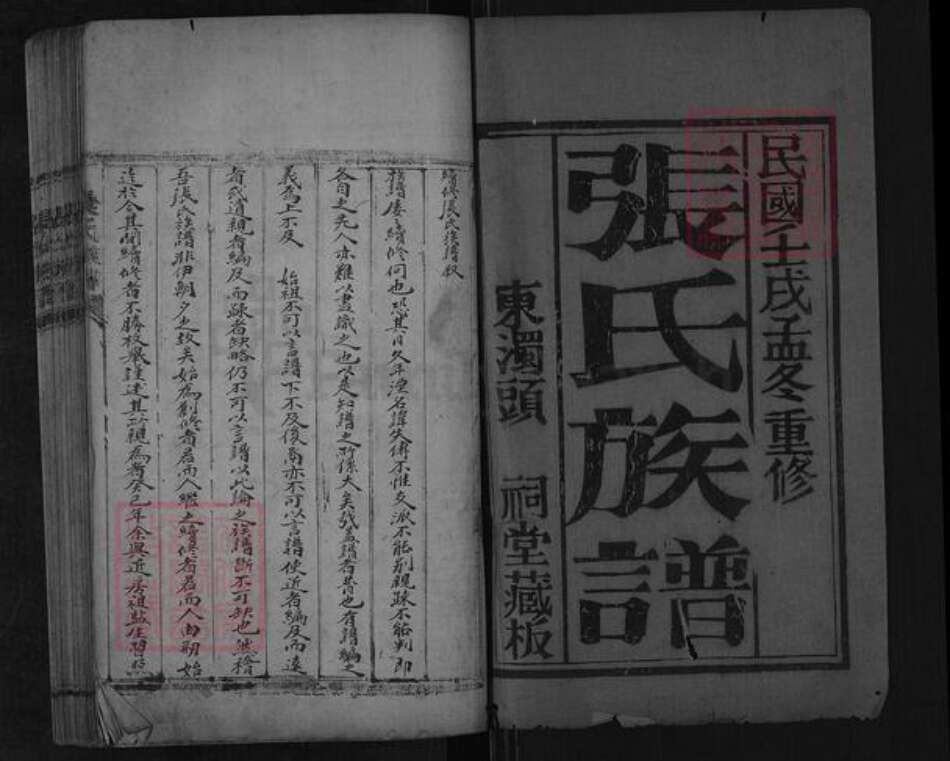 民國壬戌孟冬重修
張氏族譜
東濁頭 祠堂藏板
續修張氏族譜叙
族譜屢屢續修何也恐其日久年湮名諱失傳不惟支派不能別親疎不能判即
各自之先人亦難以盡識之也以是知譜之所係大矣哉蓋譜者普也有譜編之
義焉上不及 始祖不可以言譜下不及後裔亦不可以言譜使近者編及而遠
者或遺親者編及而疎者缺略仍不可以言譜以此論之族譜斷不可缺也然稽
吾張氏族譜非伊朝夕之故矣始為創修者君而人繼之續修者君而人由明始
迄於今其間續修者不勝枚舉謹述其以親為者癸巳年余與近居祖監生